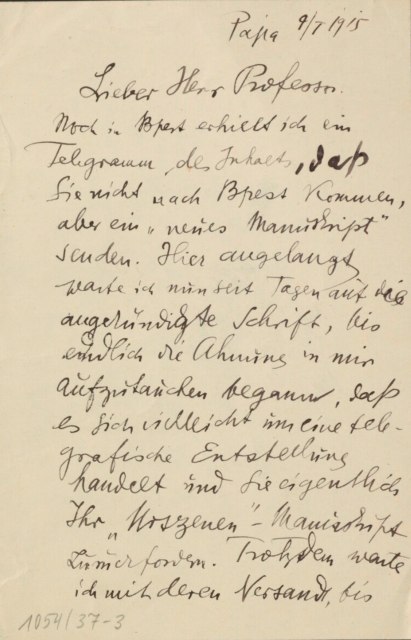 Papa 9/I 1915
Lieber Herr Professor.
Noch in Bpest erhielt ich ein
Telegramm des Inhalts, daß
Sie nicht nach Bpest kommen,
aber ein „neues Manuskript"
senden. Hier angelangt
warte ich nun seit Tagen auf die
angekündigte Schrift, bis
endlich die Ahnung in mir
aufzutauchen begann, daß
es sich vielleicht um eine tele-
grafische Entstellung
handelt und Sie eigentlich
Ihr „Urszenen"-Manuskript
zurückfordern. Trotzdem warte
ich mit deren Versandt, bis
1054/37-3